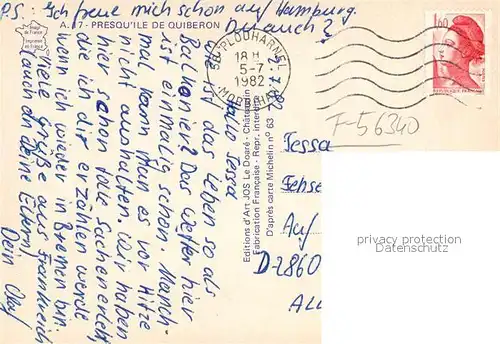 PS: Ich freue mich schon auf Hamburg.
Du auch?
A. 7 - PRESQU'ILE DE QUIBERON
Image de France
Imprimé en France
5.7.82
Hallo Tessa
wie ist das Leben so als
Balkonier? Das Wetter hier
ist einmalig schön. Manch-
mal kann man es vor Hitze
nicht aushalten. Wir haben
hier schon tolle Sachen erlebt
die ich dir erzählen werde
wenn ich wieder in Bremen bin.
Viele Grüße aus Frankreich
(auch an deine Eltern)
Dein Olaf
Editions d'Art JOS Le Doaré - Châteaulin
Fabrication Française - Repr. interdite
D'après carte Michelin n° 63
56 PLOUHARNEL
18 H
5-7
1982
MORBIHAN
1,60
REPUBLIQUE FRANÇAISE
F-56340
Tessa
Auf
D-2860
privacy protection
watermark